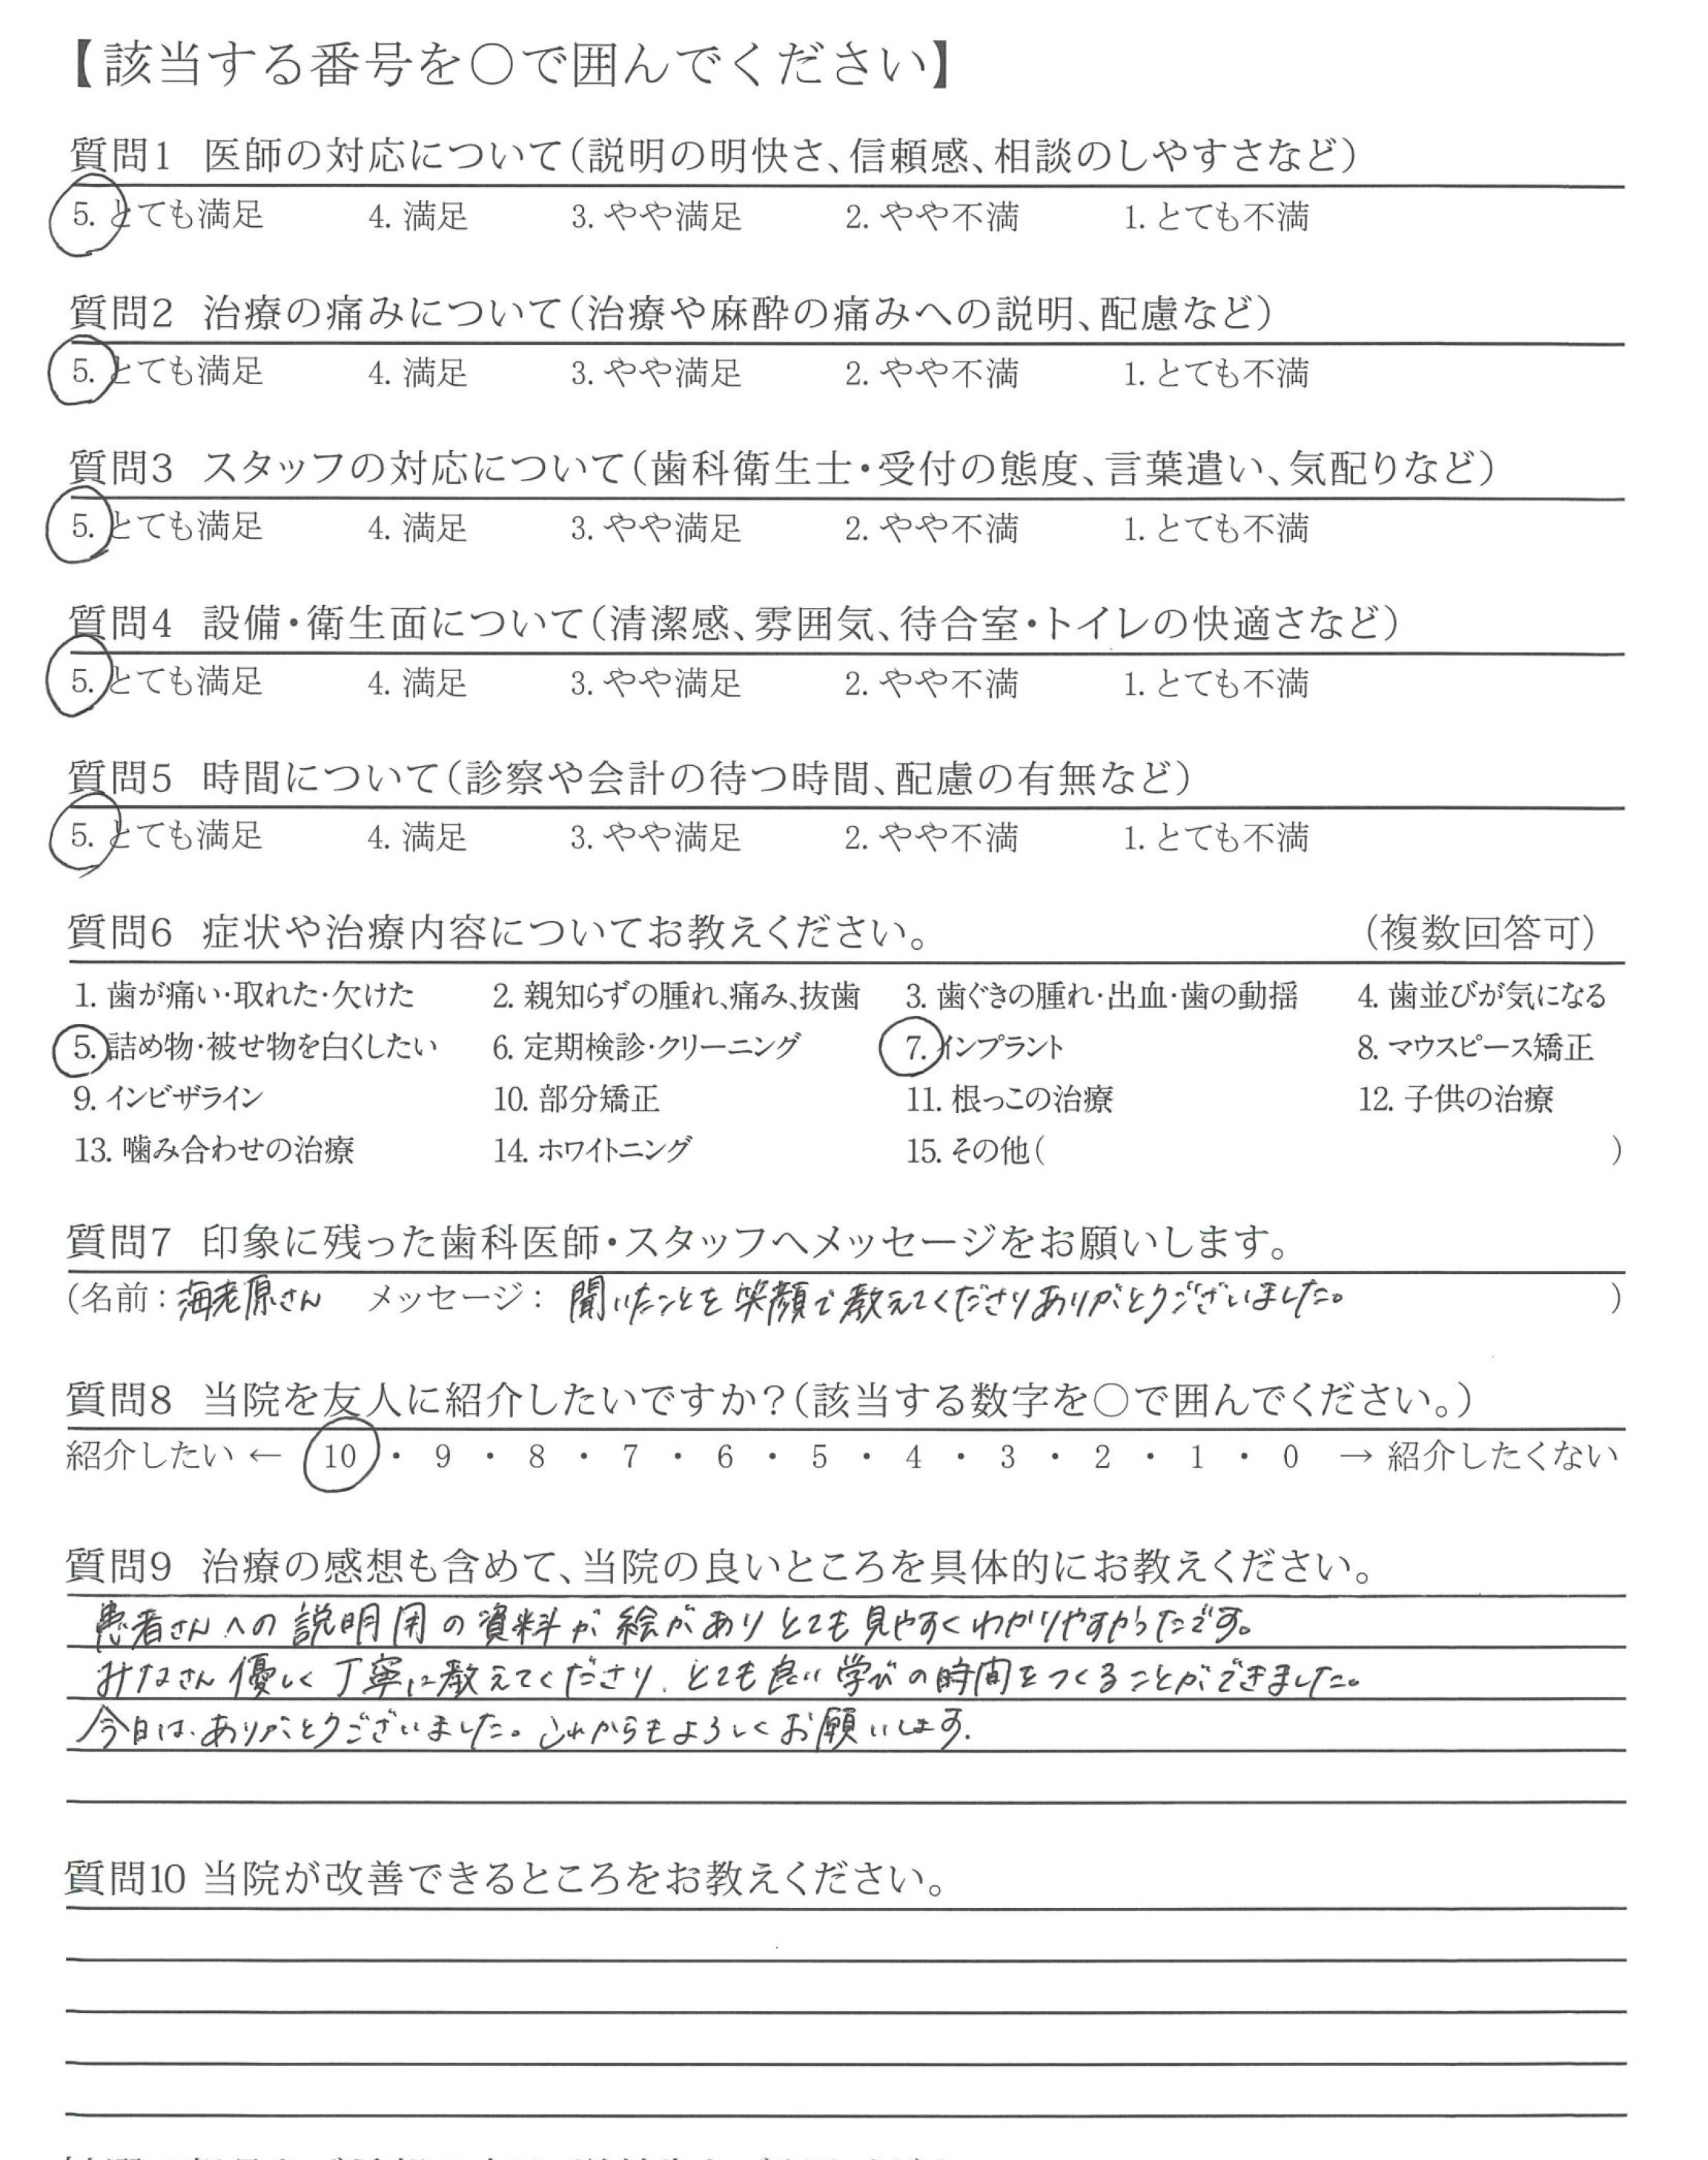 【該当する番号を○で囲んでください】
質問1 医師の対応について(説明の明快さ、信頼感、相談のしやすさなど)
5. とても満足 4. 満足 3. やや満足 2. やや不満 1. とても不満
質問2 治療の痛みについて(治療や麻酔の痛みへの説明、配慮など)
5. とても満足 4. 満足 3. やや満足 2. やや不満 1. とても不満
質問3 スタッフの対応について(歯科衛生士・受付の態度、言葉遣い、気配りなど)
5. とても満足 4. 満足 3. やや満足 2. やや不満 1. とても不満
質問4 設備・衛生面について(清潔感、雰囲気、待合室・トイレの快適さなど)
5. とても満足 4. 満足 3. やや満足 2. やや不満 1. とても不満
質問5 時間について(診察や会計の待つ時間、配慮の有無など)
5. とても満足 4. 満足 3. やや満足 2. やや不満 1. とても不満
質問6 症状や治療内容についてお教えください。 (複数回答可)
1. 歯が痛い・取れた・欠けた 2. 親知らずの腫れ、痛み、抜歯 3. 歯ぐきの腫れ・出血・歯の動揺 4. 歯並びが気になる
5. 詰め物・被せ物を白くしたい 6. 定期検診・クリーニング 7. インプラント 8. マウスピース矯正
9. インビザライン 10. 部分矯正 11. 根っこの治療 12. 子供の治療
13. 噛み合わせの治療 14. ホワイトニング 15. その他( )
質問7 印象に残った歯科医師・スタッフへメッセージをお願いします。
(名前：海老原さん メッセージ：聞いたことを笑顔で教えてくださりありがとうございました。 )
質問8 当院を友人に紹介したいですか？(該当する数字を○で囲んでください。)
紹介したい ← 10 ・ 9 ・ 8 ・ 7 ・ 6 ・ 5 ・ 4 ・ 3 ・ 2 ・ 1 ・ 0 → 紹介したくない
質問9 治療の感想も含めて、当院の良いところを具体的にお教えください。
患者さんへの説明用の資料が絵がありとても見やすくわかりやすかったです。
みなさん優しく丁寧に教えてくださり、とても良い学びの時間をつくることができました。
今日は、ありがとうございました。これからもよろしくお願いします.
質問10 当院が改善できるところをお教えください。